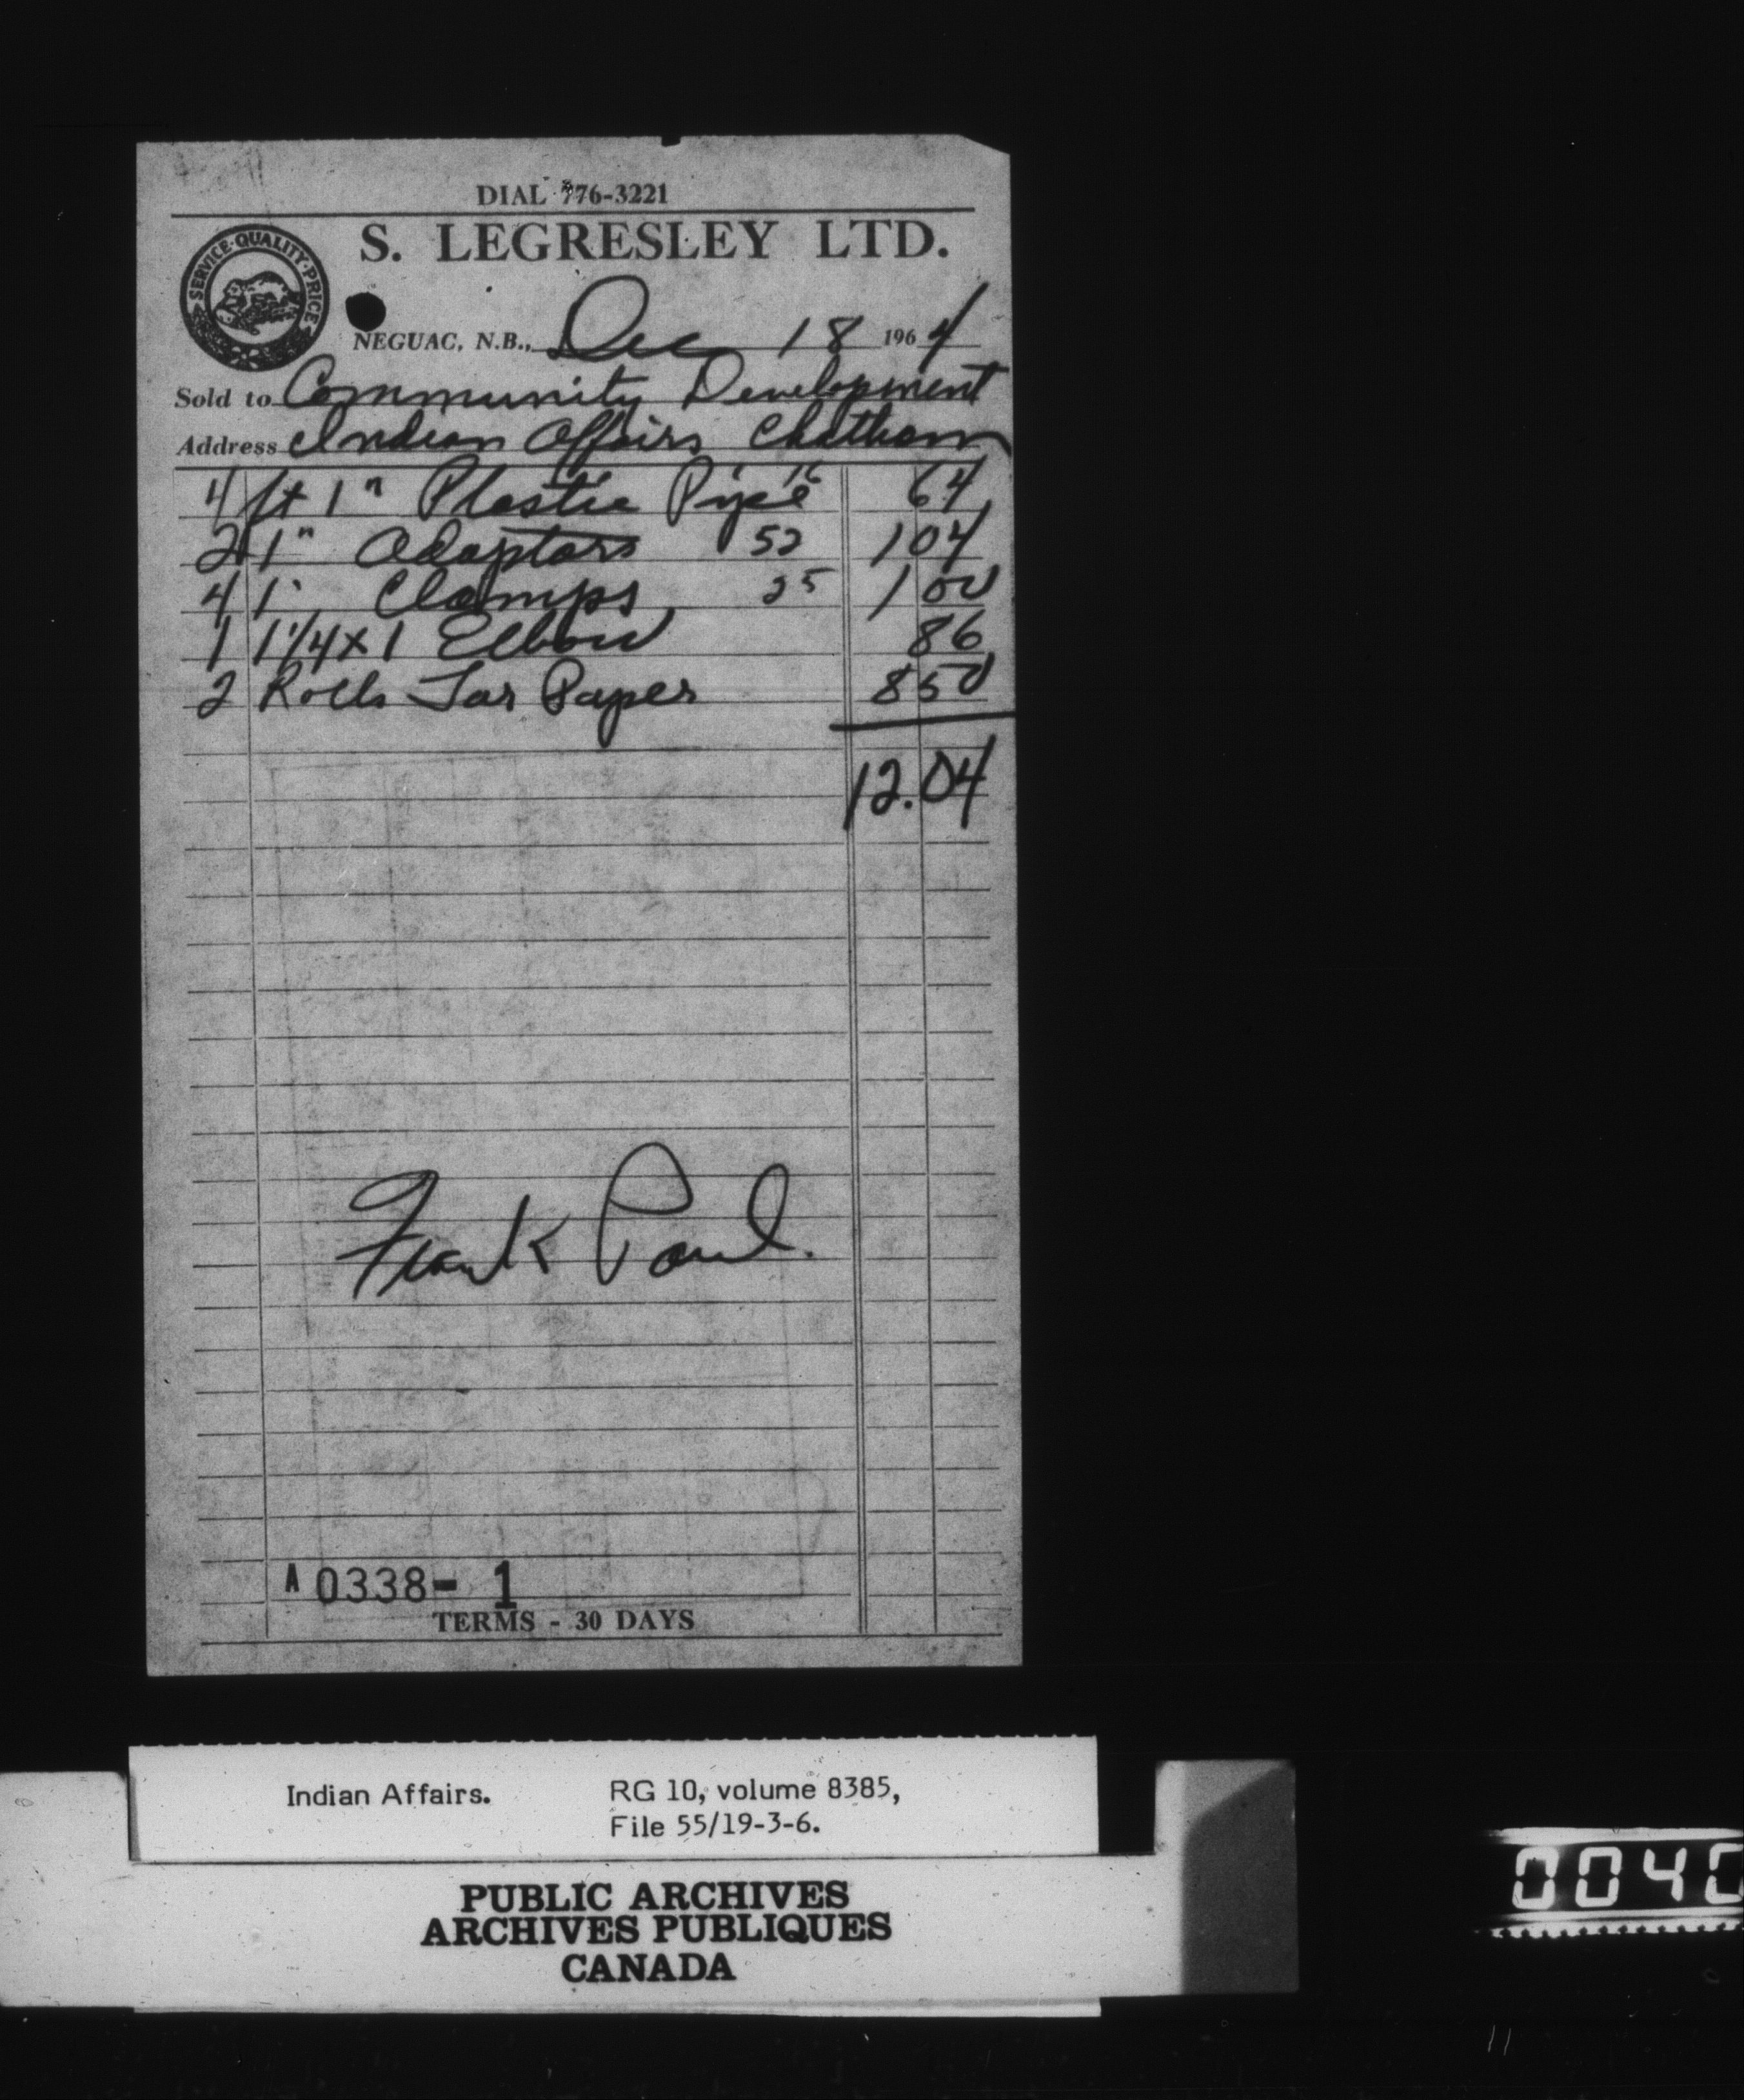 DIAL 776-3221
S. LEGRESLEY LTD.
SERVICE·QUALITY·PRICE
NEGUAC, N.B., Dec 18 1964
Sold to Community Development
Address Indian Affairs Chatham
4 ft 1" Plastic Pipe 16 64
2 1" Adaptors 52 1 04
4 1" Clamps 25 1 00
1 1 1/4 x 1 Elbow 86
2 Rolls Tar Paper 8 50
12.04
Frank Paul.
A 0338- 1
TERMS - 30 DAYS
Indian Affairs. RG 10, volume 8385,
File 55/19-3-6.
PUBLIC ARCHIVES
ARCHIVES PUBLIQUES
CANADA
0040